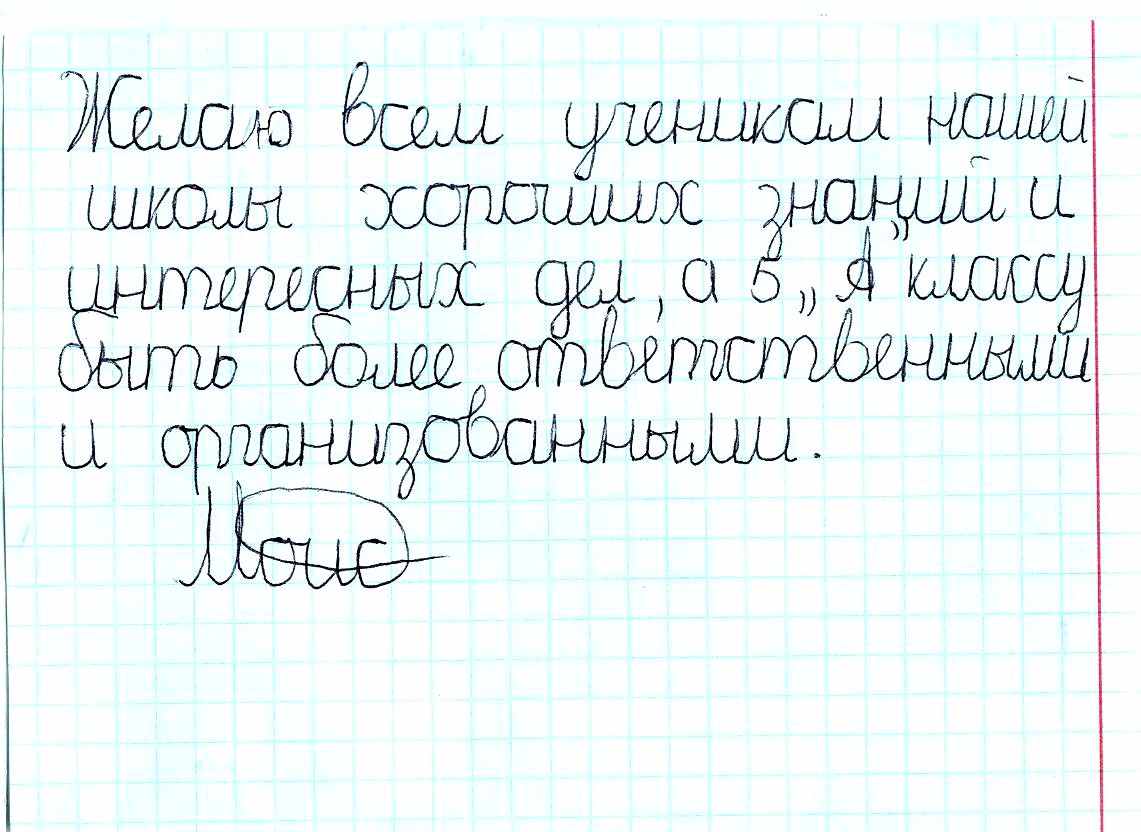 Желаю всем ученикам нашей
школы хороших знаний и
интересных дел, а 5 „А” классу
быть более ответственными
и организованными.